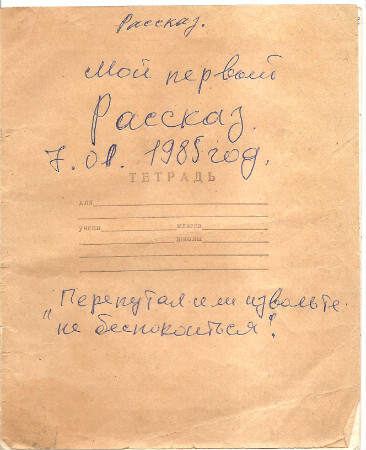 Рассказ.
Мой первый
Рассказ.
7.01.1985 год.
ТЕТРАДЬ
для
учени класса
школы
„Перепутал или извольте
не беспокоиться".